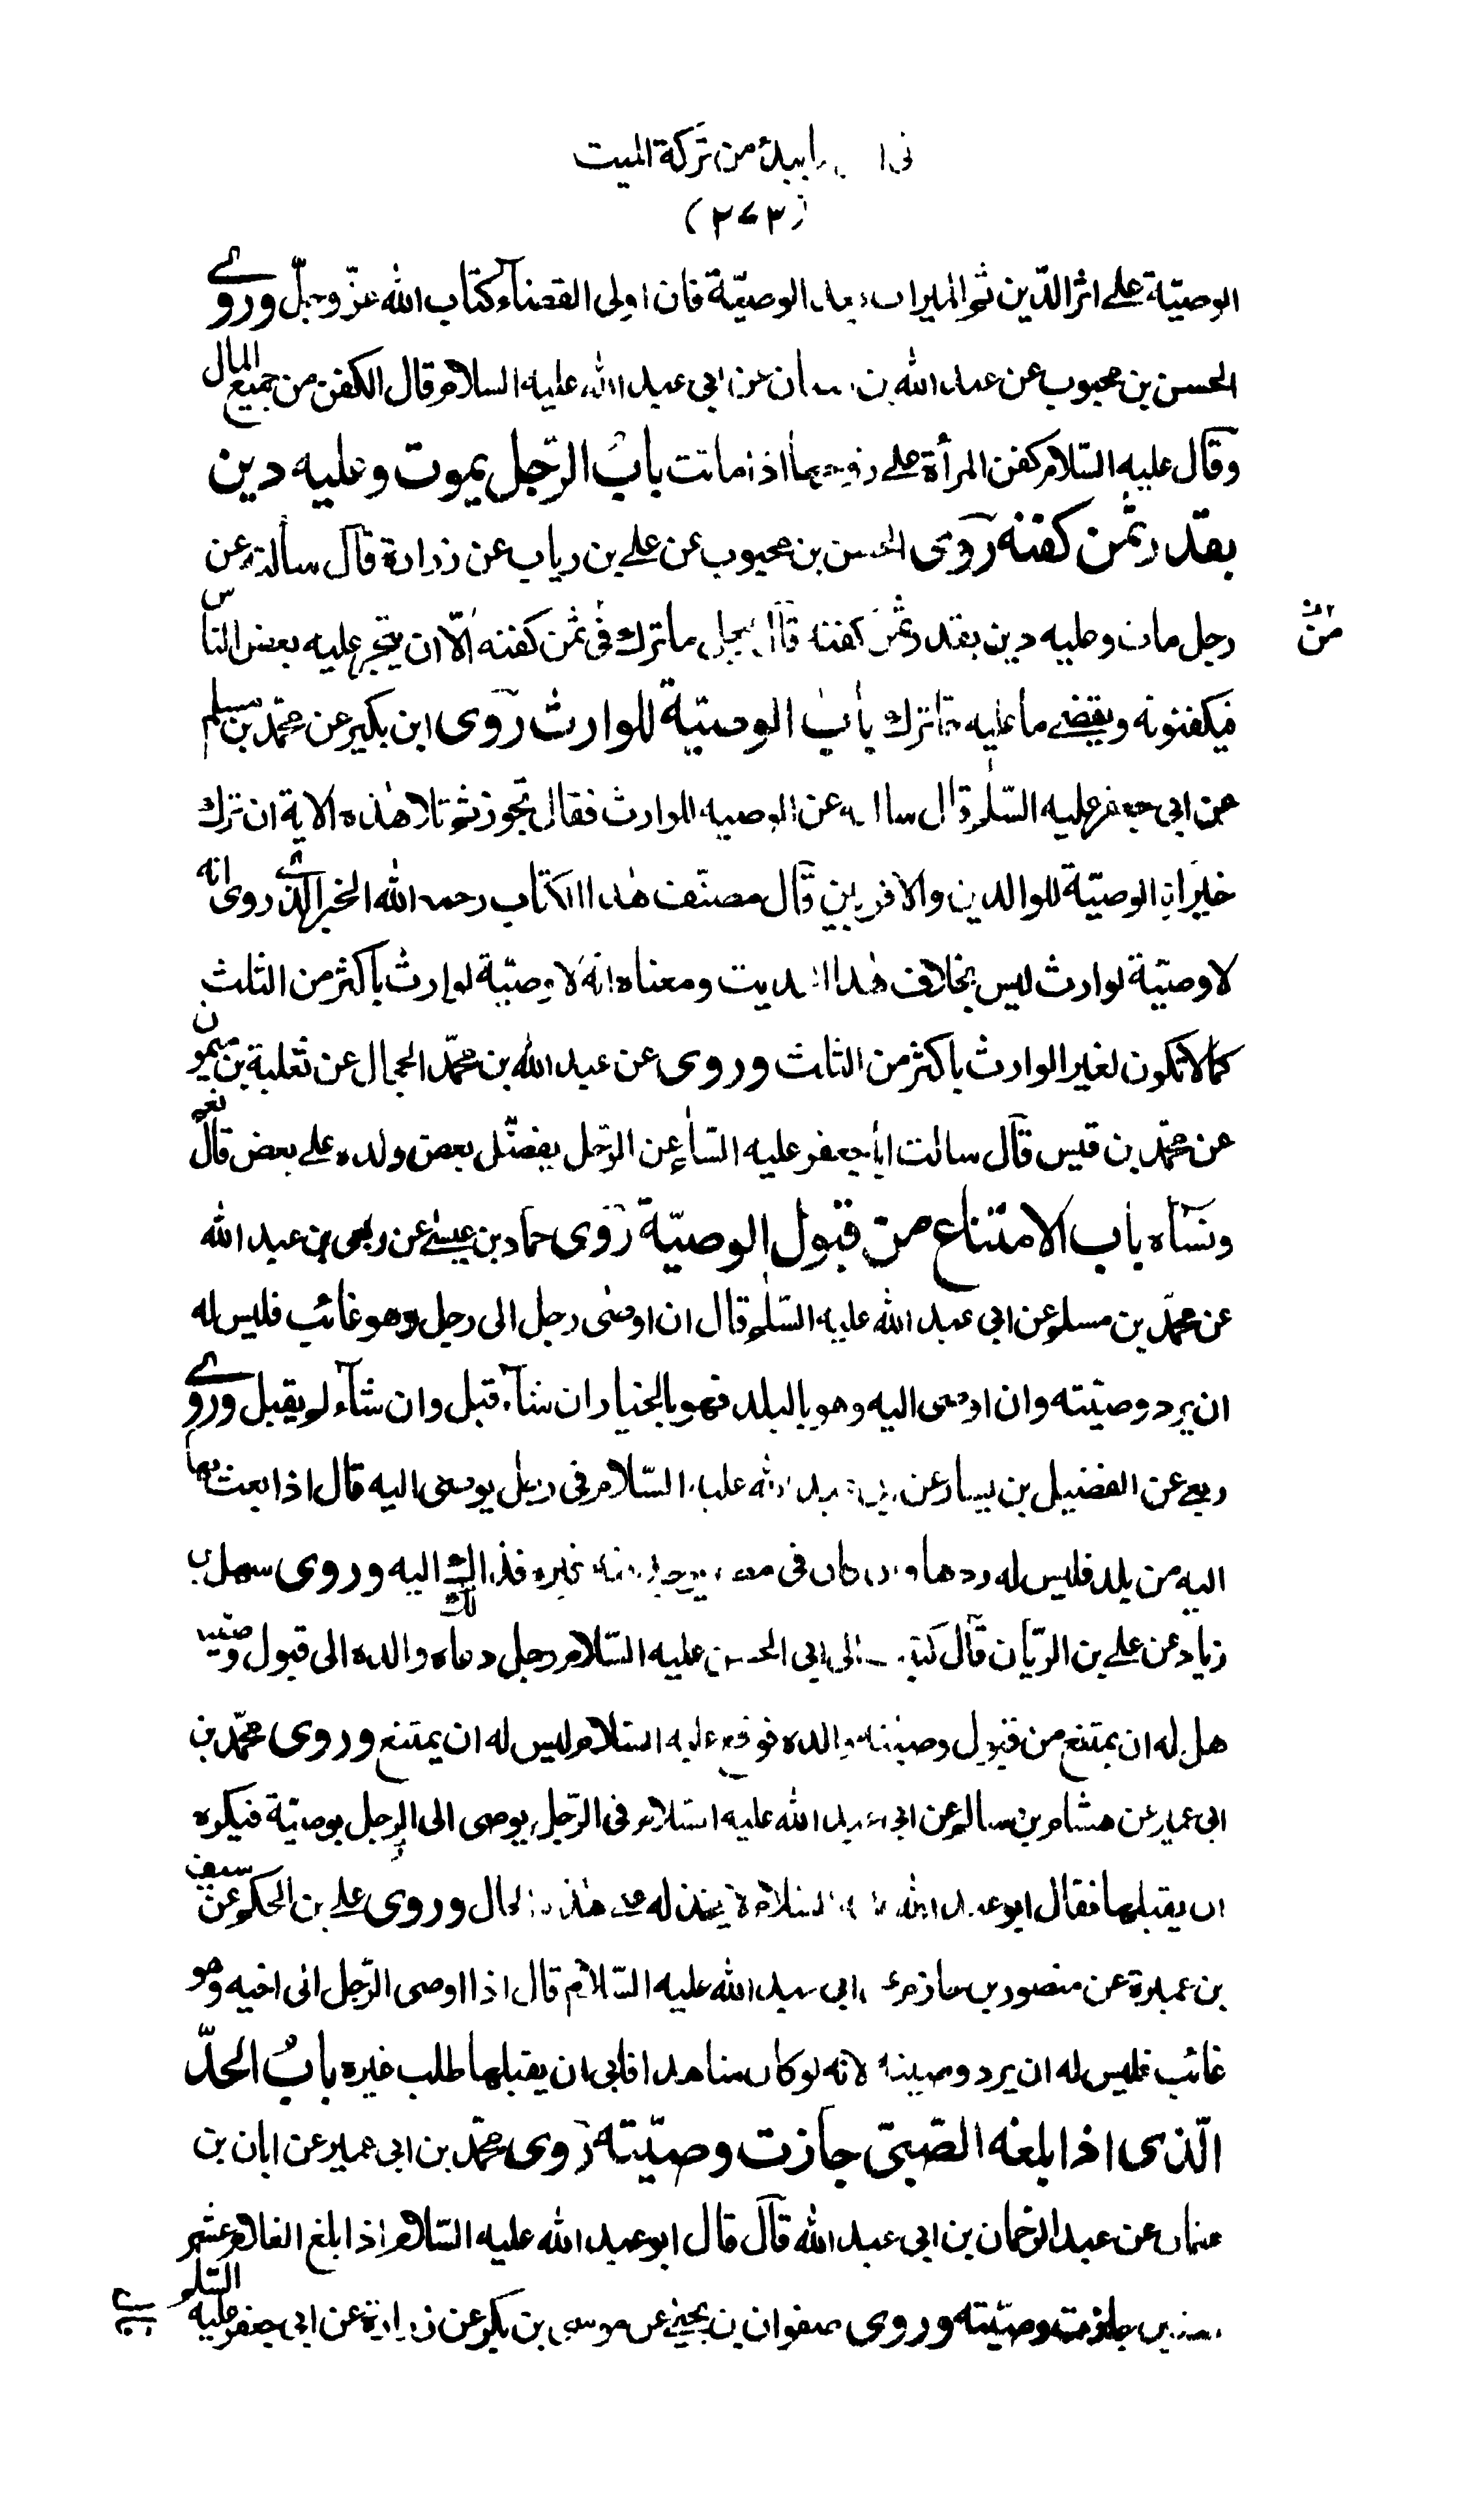 يبدأ من تركة الميت
(٢٧٣)
الوصيّة علے اثر الدّين ثم الميراث بعد الوصيّة فان اولى القضاء كتاب الله عزّ وجلّ وروے
الحسن بن محبوب عن عبد الله بن سنان عن ابي عبد الله عليه السلام قال الكفن من جميع المال
وقال عليه السّلام كفن المرأة علے زوجها اذا ماتت باب الرّجل يموت وعليه دين
بقدر ثمن كفنه روى الحسن بن محبوب عن علے بن رياب عن زرارة قال سألته عن
رجل مات وعليه دين بقدر ثمن كفنه قال يجعل ما ترك فى ثمن كفنه الّا ان يتجر عليه بعض الناس
فيكفنونه ويقضے ما عليه مما ترك باب الوصيّة للوارث روى ابن بكير عن محمّد بن مسلم
عن ابي جعفر عليه السّلم قال سالته عن الوصيه للوارث فقال تجوز ثم تلا هٰذه الاية ان ترك
خيرا الوصيّة للوالدين والاقربين قال مصنّف هذا الكتاب رحمه الله الخبر الّذے روى انه
لا وصيّة لوارث ليس بخلاف هٰذا الحديث ومعناه انه لا وصيّة لوارث باكثر من الثلث
كما لا تكون لغير الوارث باكثر من الثلث وروى عن عبد الله بن محمّد الحجال عن ثعلبة بن ميمون
عن محمّد بن قيس قال سالت ابا جعفر عليه السّلم عن الرّجل يفضّل بعض ولده علے بعض قال نعم
ونساه باب الامتناع من قبول الوصيّة روى حماد بن عيسٰے عن ربعى بن عبد الله
عن محمّد بن مسلم عن ابي عبد الله عليه السّلم قال ان اوصى رجل الى رجل وهو غائب فليس له
ان يرد وصيّته وان اوصى اليه وهو بالبلد فهو بالخيار ان شاء قبل وان شاء لم يقبل وروے
ربعے عن الفضيل بن يسار عن ابي عبد الله عليه السّلام فى رجل يوصى اليه قال اذا بعث بها
اليه من بلد فليس له ردها وان كان فى مصر يوجد فيه غيره فذلك اليه وروى سهل بن
زياد عن علے بن الريّان قال كتبت الى ابي الحسن عليه السّلام رجل دعاه والده الى قبول وصيّته
هل له ان يمتنع من قبول وصيّته والده فوقع عليه السّلام ليس له ان يمتنع وروى محمّد بن
ابى عمير عن هشام بن سالم عن ابي عبد الله عليه السّلام فى الرّجل يوصى الى الرجل بوصيّة فيكره
ان يقبلها فقال ابو عبد الله عليه السّلام لا يخذله علے هٰذه الحال وروى علے بن الحكم عن سيف
بن عميرة عن منصور بن حازم عن ابي عبد الله عليه السّلام قال اذا اوصى الرّجل الى اخيه وهو
غائب فليس له ان يرد وصيته لانه لو كان شاهدا فابى ان يقبلها طلب غيره باب الحدّ
الّذى اذا بلغه الصّبىّ جازت وصيّته روى محمّد بن ابى عمير عن ابان بن
عثمان عن عبد الرّحمان بن ابى عبد الله قال قال ابو عبد الله عليه السّلام اذا بلغ الغلام عشر
سنين جازت وصيّته وروى صفوان بن يحيٰے عن موسى بن بكر عن زرارة عن ابى جعفر عليه السّلم